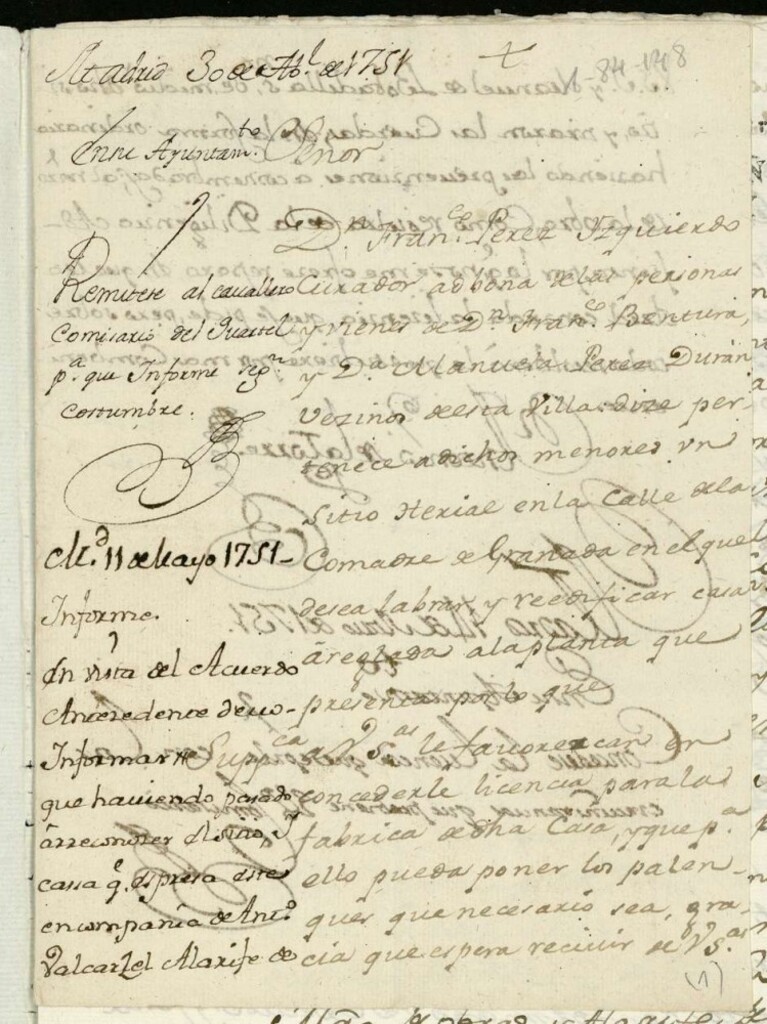 Madrid 30 de Ab.l de 1751
84-148
En su Ayuntam.to
Remitese al cavallero
Comisario del Quartel
p.a que Informe segn
Costumbre.
Md.d 11 de Mayo 1751-
Informe.
En vista del Acuerdo
Antecedente devo
Informar
que haviendo pasado
a rreconozer el sitio, y
cassa q.e espresa este
en compañia de Ant.o
Valcarzel Alarife de
Señor
D.n Fran.co Perez Yzquierdo
Curador ad bona de las personas
y vienes de D.n Fran.co Bentura,
y D.a Manuela Perez Durán
vezinos de esta Villa: dize per-
tenece a dichos menores un
sitio Herial en la Calle de la
Comadre de Granada en el que
desea labrar, y reedificar casa
arreglada a la planta que
presenta por lo que
Supp.ca a V.S.as le favorezcan en
concederle licencia para la
fabrica de dha Casa, y que p.a
ello pueda poner los palen-
ques que necesario sea, gra-
cia que espera recivir de V.S.as
(1)